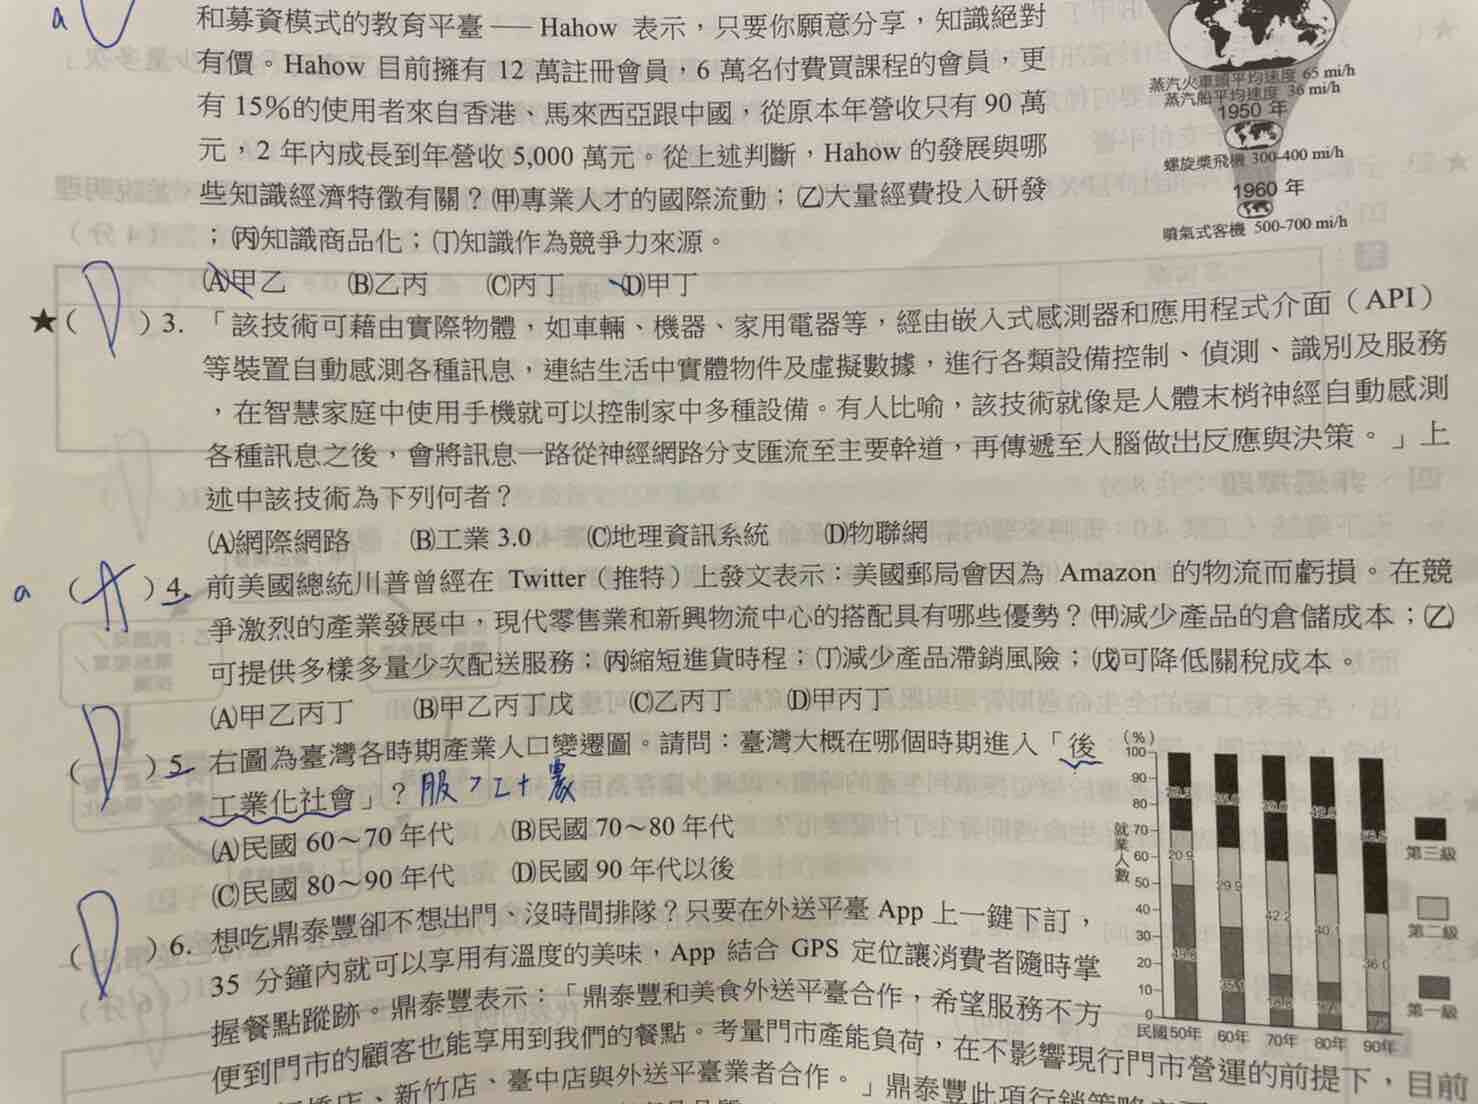 a
和募資模式的教育平臺——Hahow 表示，只要你願意分享，知識絕對
有價。Hahow 目前擁有 12 萬註冊會員，6 萬名付費買課程的會員，更
有 15%的使用者來自香港、馬來西亞跟中國，從原本年營收只有 90 萬
元，2 年內成長到年營收 5,000 萬元。從上述判斷，Hahow 的發展與哪
些知識經濟特徵有關？㈙專業人才的國際流動；㈚大量經費投入研發
；㈛知識商品化；㈜知識作為競爭力來源。
(A)甲乙 (B)乙丙 (C)丙丁 (D)甲丁
蒸汽火車頭平均速度 65 mi/h
蒸汽船平均速度 36 mi/h
1950 年
螺旋槳飛機 300-400 mi/h
1960 年
噴氣式客機 500-700 mi/h
★( D )3. 「該技術可藉由實際物體，如車輛、機器、家用電器等，經由嵌入式感測器和應用程式介面（API）
等裝置自動感測各種訊息，連結生活中實體物件及虛擬數據，進行各類設備控制、偵測、識別及服務
，在智慧家庭中使用手機就可以控制家中多種設備。有人比喻，該技術就像是人體末梢神經自動感測
各種訊息之後，會將訊息一路從神經網路分支匯流至主要幹道，再傳遞至人腦做出反應與決策。」上
述中該技術為下列何者？
(A)網際網路 (B)工業 3.0 (C)地理資訊系統 (D)物聯網
a ( A )4. 前美國總統川普曾經在 Twitter（推特）上發文表示：美國郵局會因為 Amazon 的物流而虧損。在競
爭激烈的產業發展中，現代零售業和新興物流中心的搭配具有哪些優勢？㈙減少產品的倉儲成本；㈚
可提供多樣多量少次配送服務；㈛縮短進貨時程；㈜減少產品滯銷風險；㈝可降低關稅成本。
(A)甲乙丙丁 (B)甲乙丙丁戊 (C)乙丙丁 (D)甲丙丁
( D )5. 右圖為臺灣各時期產業人口變遷圖。請問：臺灣大概在哪個時期進入「後
工業化社會」？ 服>工+農
(A)民國 60～70 年代 (B)民國 70～80 年代
(C)民國 80～90 年代 (D)民國 90 年代以後
(%)
100
90
80
70
60
50
40
30
20
10
0
就業人數
20.9
49.8
29.9
42.2
40.1
36.0
第三級
第二級
第一級
民國50年 60年 70年 80年 90年
( D )6. 想吃鼎泰豐卻不想出門、沒時間排隊？只要在外送平臺 App 上一鍵下訂，
35 分鐘內就可以享用有溫度的美味，App 結合 GPS 定位讓消費者隨時掌
握餐點蹤跡。鼎泰豐表示：「鼎泰豐和美食外送平臺合作，希望服務不方
便到門市的顧客也能享用到我們的餐點。考量門市產能負荷，在不影響現行門市營運的前提下，目前
店、新竹店、臺中店與外送平臺業者合作。」鼎泰豐此項行銷策略